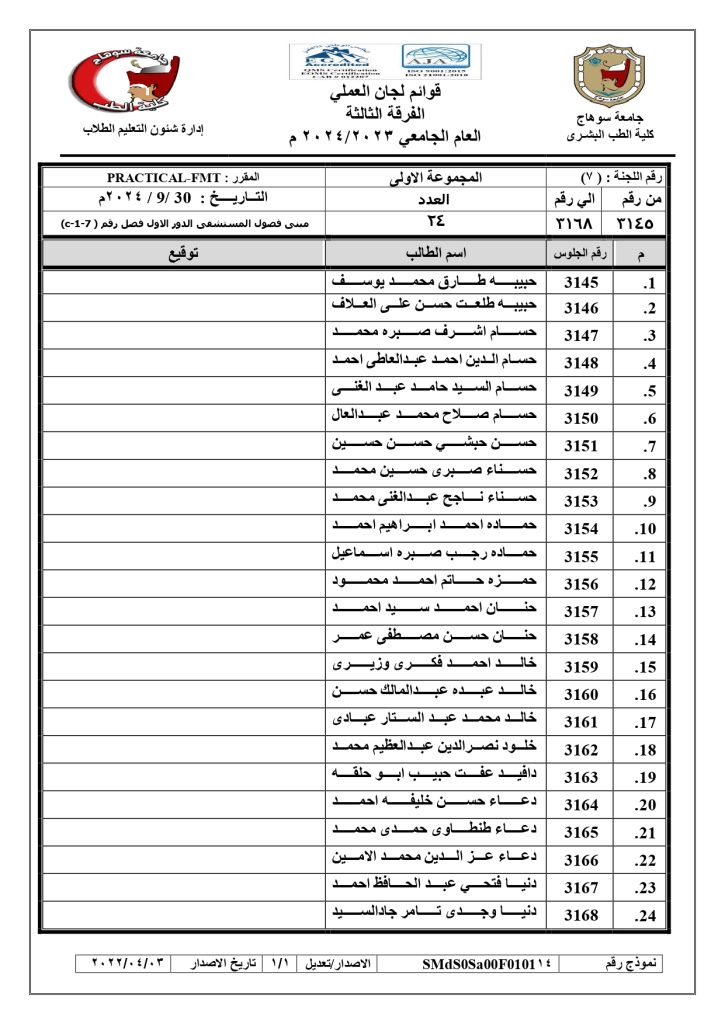 جامعة سوهاج
كلية الطب
EGAC
Accredited
QMS Certification
EOMS Certification
CAB # 012207
AJA
ISO 9001/2015
ISO 21001-2018
قوائم لجان العملي
الفرقة الثالثة
العام الجامعي ٢٠٢٤/٢٠٢٣ م
جامعة سوهاج
كلية الطب البشرى
إدارة شئون التعليم الطلاب
رقم اللجنة : ( ٧) المجموعة الاولى المقرر : PRACTICAL-FMT
من رقم الي رقم العدد التــاريــخ : 30 /9 / ٢٠٢٤م
٣١٤٥ ٣١٦٨ ٢٤ مبنى فصول المستشفى الدور الاول فصل رقم ( c-1-7)
م رقم الجلوس اسم الطالب توقيع
1. 3145 حبيبه طارق محمد يوسف
2. 3146 حبيبه طلعت حسن على العلاف
3. 3147 حسام اشرف صبره محمد
4. 3148 حسام الدين احمد عبدالعاطى احمد
5. 3149 حسام السيد حامد عبد الغنى
6. 3150 حسام صلاح محمد عبدالعال
7. 3151 حسن حبشي حسن حسين
8. 3152 حسناء صبرى حسين محمد
9. 3153 حسناء ناجح عبدالغنى محمد
10. 3154 حماده احمد ابراهيم احمد
11. 3155 حماده رجب صبره اسماعيل
12. 3156 حمزه حاتم احمد محمود
13. 3157 حنان احمد سيد احمد
14. 3158 حنان حسن مصطفى عمر
15. 3159 خالد احمد فكرى وزيرى
16. 3160 خالد عبده عبدالمالك حسن
17. 3161 خالد محمد عبد الستار عبادى
18. 3162 خلود نصرالدين عبدالعظيم محمد
19. 3163 دافيد عفت حبيب ابو حلقه
20. 3164 دعاء حسن خليفه احمد
21. 3165 دعاء طنطاوى حمدى محمد
22. 3166 دعاء عز الدين محمد الامين
23. 3167 دنيا فتحي عبد الحافظ احمد
24. 3168 دنيا وجدى تامر جادالسيد
نموذج رقم SMdS0Sa00F0101١٤ الاصدار/تعديل ١/١ تاريخ الاصدار ٢٠٢٢/٠٤/٠٣